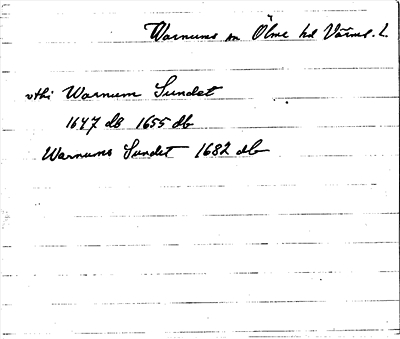 Warnums sn Ölme hd Värml. l.
vthi Warnum Sundet
1647 db 1655 db
Warnums Sundet 1682 db